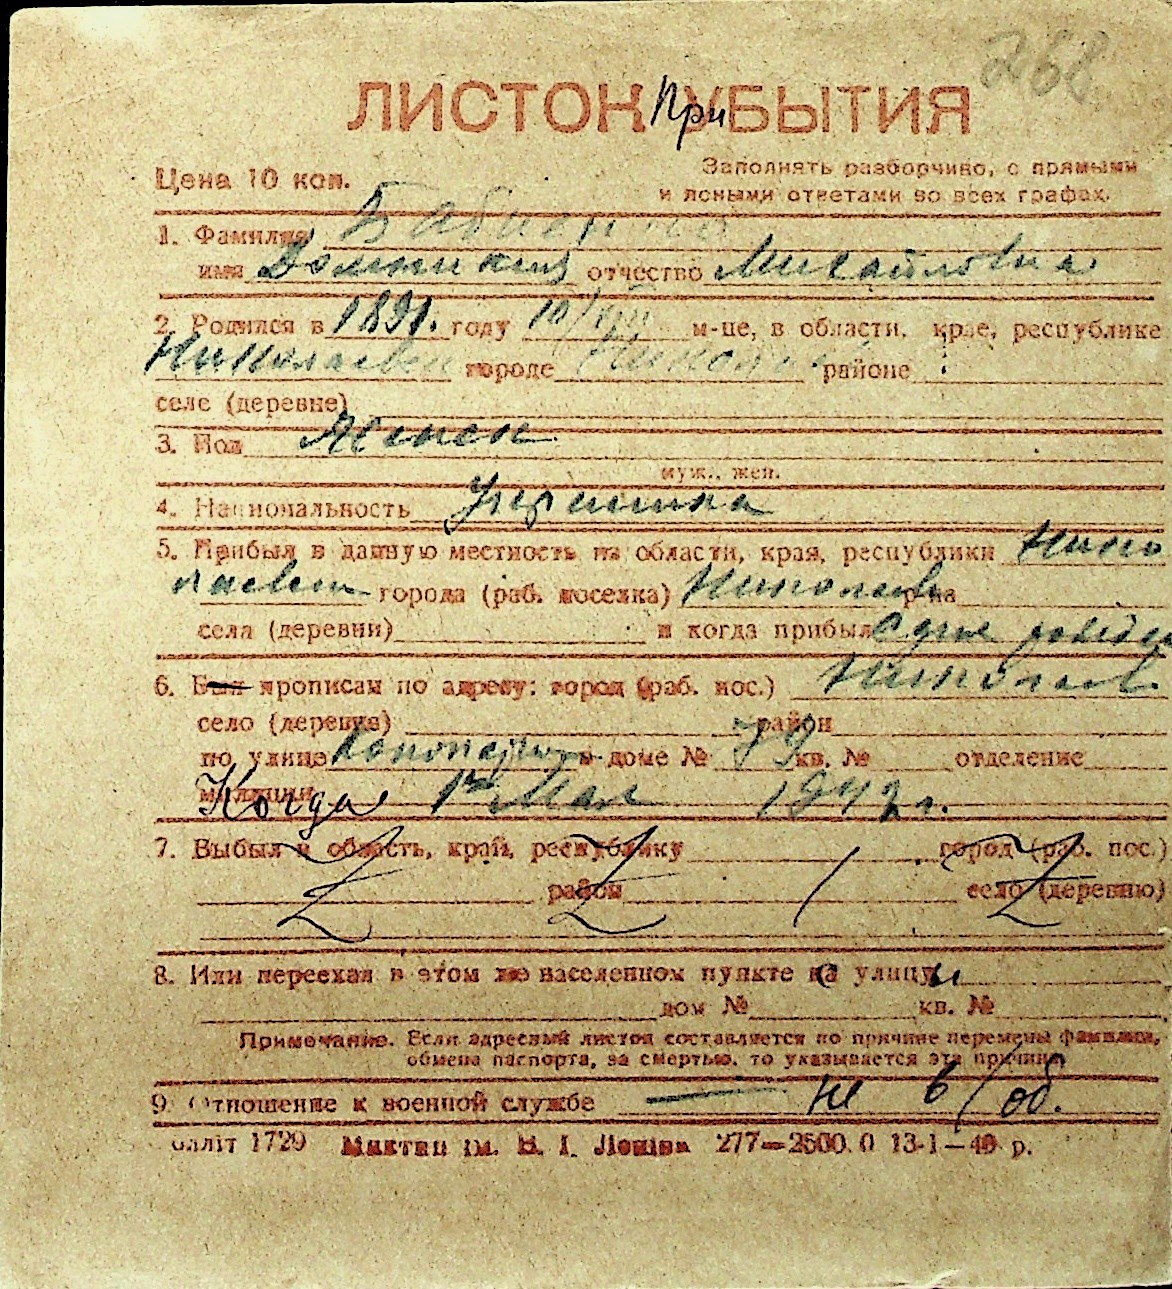 268
ЛИСТОК При УБЫТИЯ
Цена 10 коп.
Заполнять разборчиво, с прямыми
и ясными ответами во всех графах.
1. Фамилия
имя Домникия отчество Михайловна
2. Родился в 1891. году 10/VIII м-це, в области, крае, республике
Николаевск городе Никол районе
селе (деревне)
3. Пол женск
муж., жен.
4. Национальность Украинка
5. Прибыл в данную местность из области, края, республики Нико
лаевск города (раб. поселка) Николаев р-на
села (деревни) и когда прибыл С дня рожден
6. Был прописан по адресу: город (раб. пос.) Николаев
село (деревня) район
по улице в доме № 79 кв. № отделение
милиции Когда 1го Мая 1942 г.
7. Выбыл в область, край, республику город (раб. пос.)
район село (деревню)
8. Или переехал в этом же населенном пункте на улицу
дом № кв. №
Примечание. Если адресный листок составляется по причине перемены фамилии,
обмена паспорта, за смертью, то указывается эта причина
9. Отношение к военной службе — не в/об.
1729 ім. В. І. Леніна 277—2500.0 13-1—40 р.